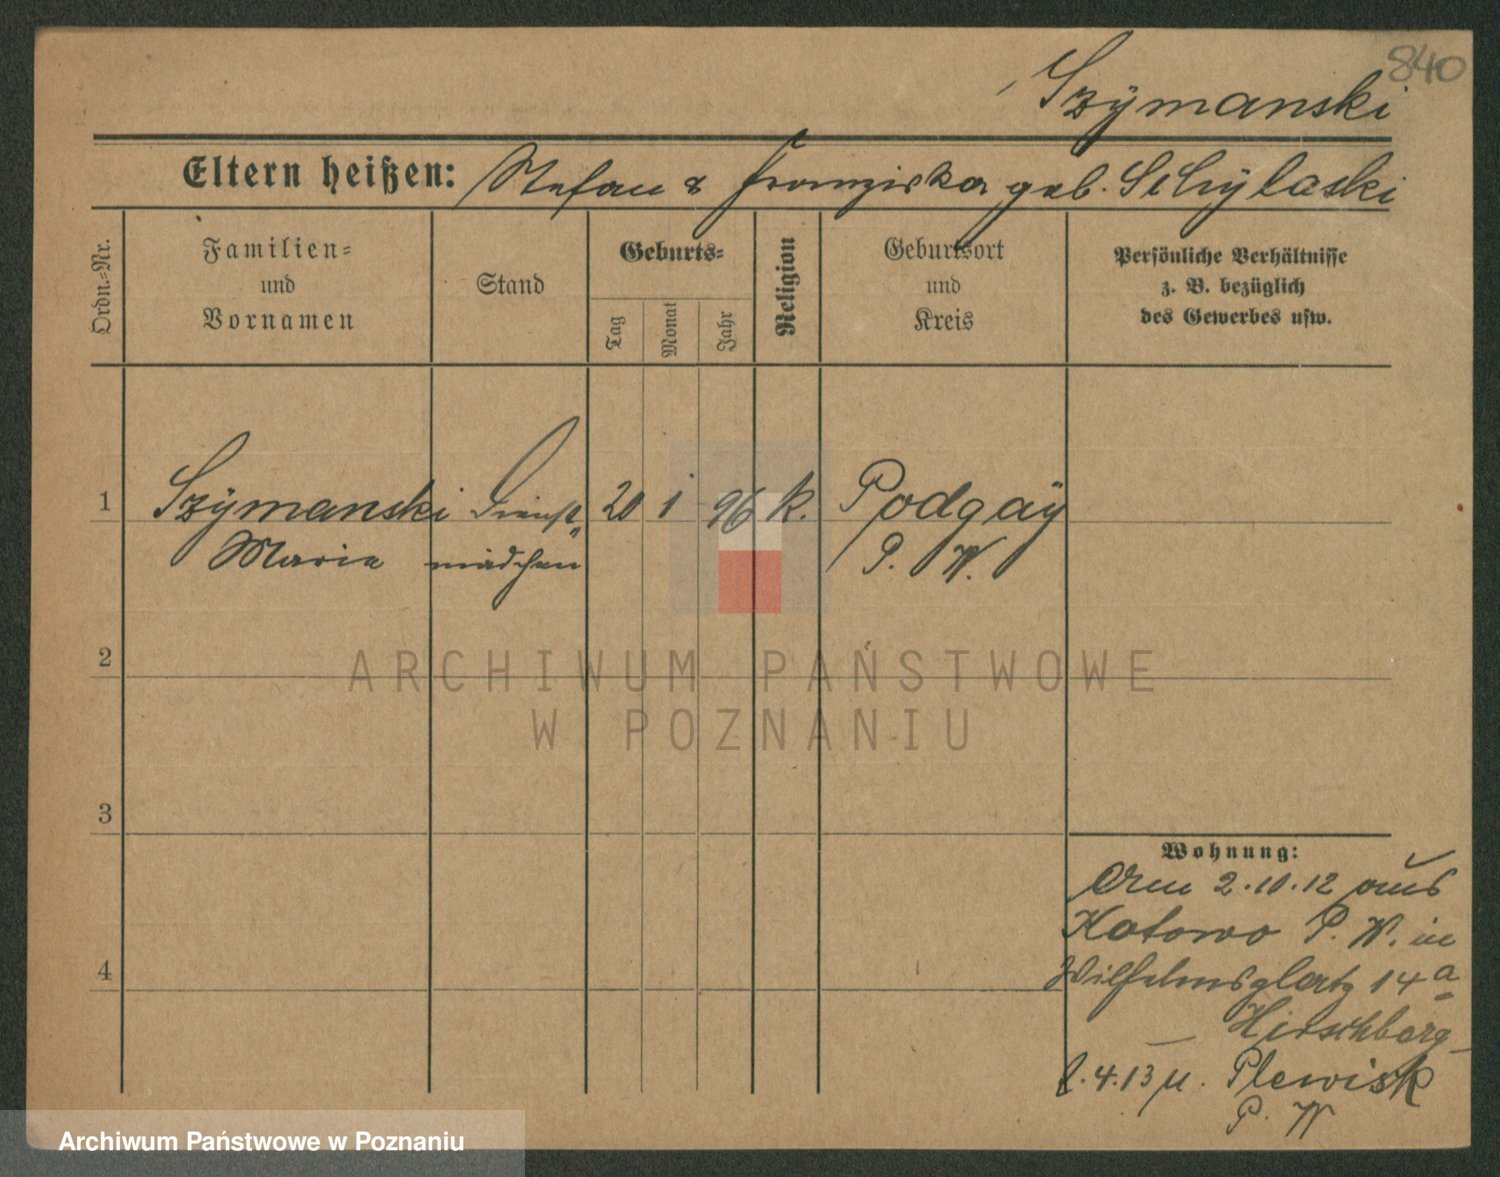 840
Szymanski
Eltern heißen: Stefan & Franziska geb. Schylaski
Ordn.-Nr.
Familien-
und
Vornamen
Stand
Geburts-
Tag
Monat
Jahr
Religion
Geburtsort
und
Kreis
Persönliche Verhältnisse
z. B. bezüglich
des Gewerbes usw.
1 Szymanski Dienst- 20 1 96 k. Podgay
Marie mädchen P. W.
2
ARCHIWUM PAŃSTWOWE
W POZNANIU
3
Wohnung:
Am 2.10.12 aus
Kotowo P. W. in
4 Wilhelmsplatz 14a
Hirschberg
1.4.13 n. Plewisk
P. W
Archiwum Państwowe w Poznaniu